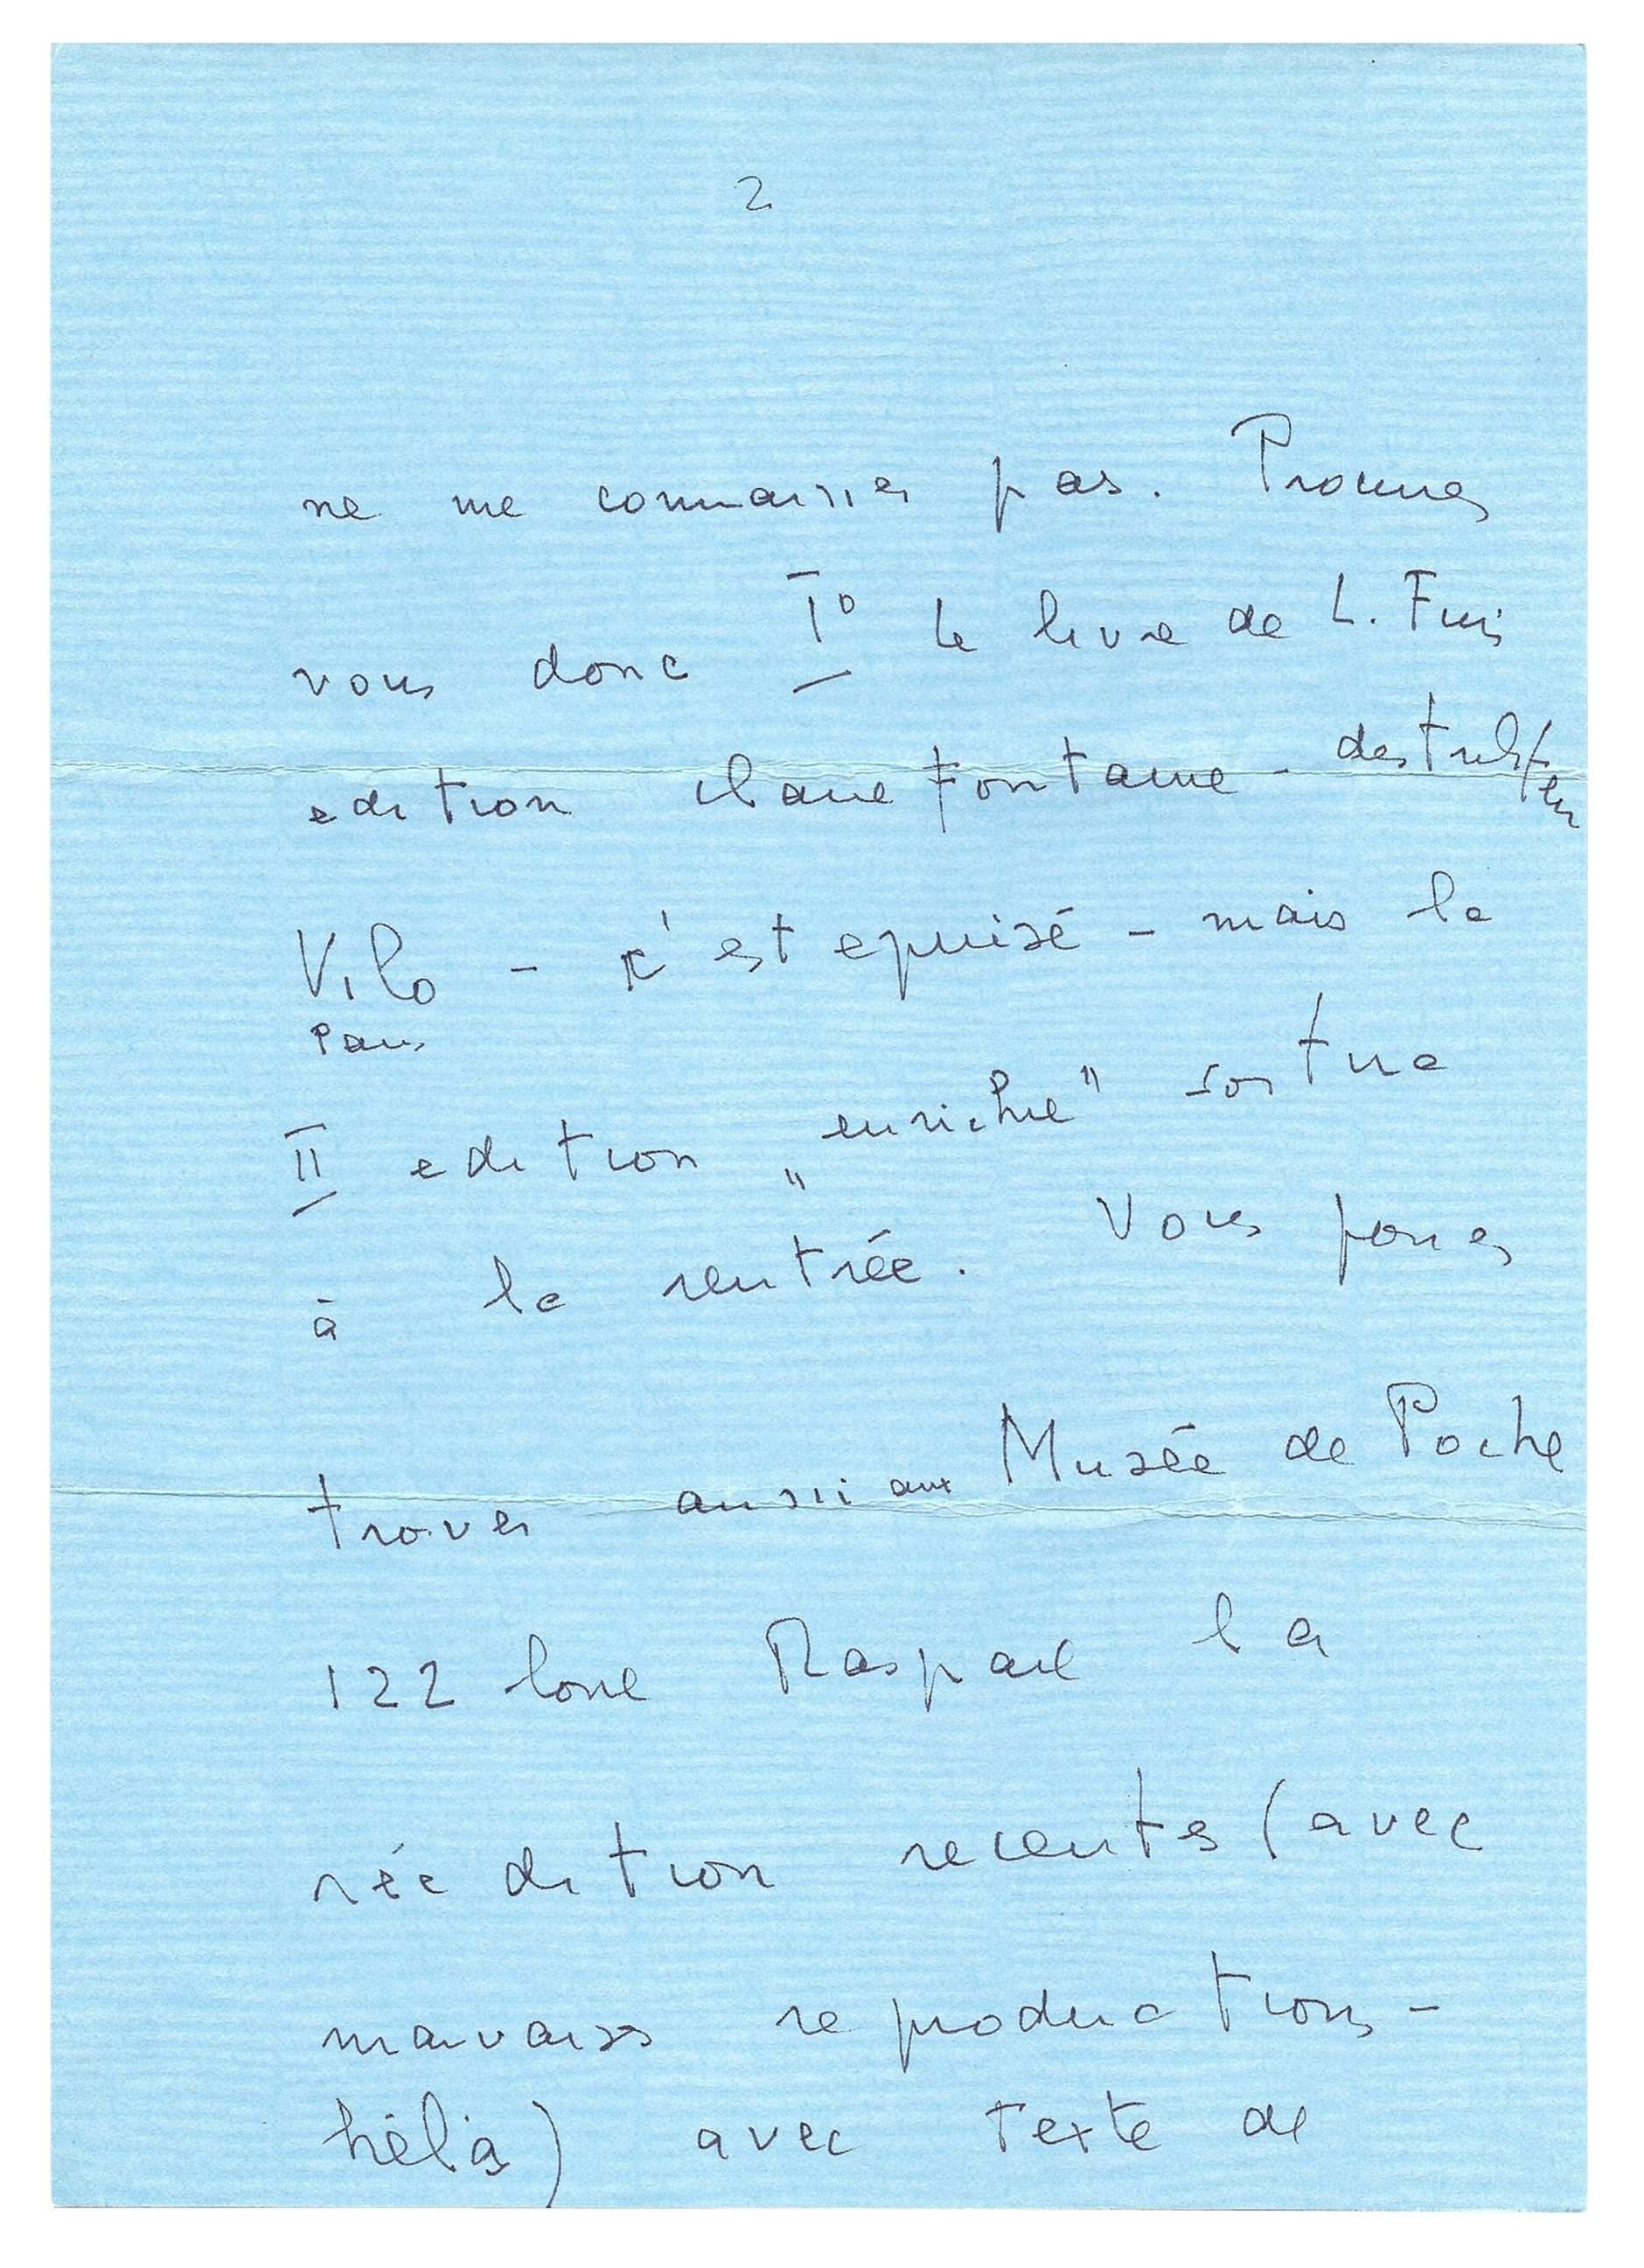 2
ne me connaissez pas. Procurez
vous donc I° le livre de L. Fini
edition Clairefontaine - destributeur
Vilo - c'est epuisé - mais la
Paris
II edition „enrichie" sortira
à la rentrée. Vous pouvez
trouver aussi aux Musée de Poche
122 boul Raspail la
réedition recente (avec
mauvaises reproductions -
hélàs) avec texte de